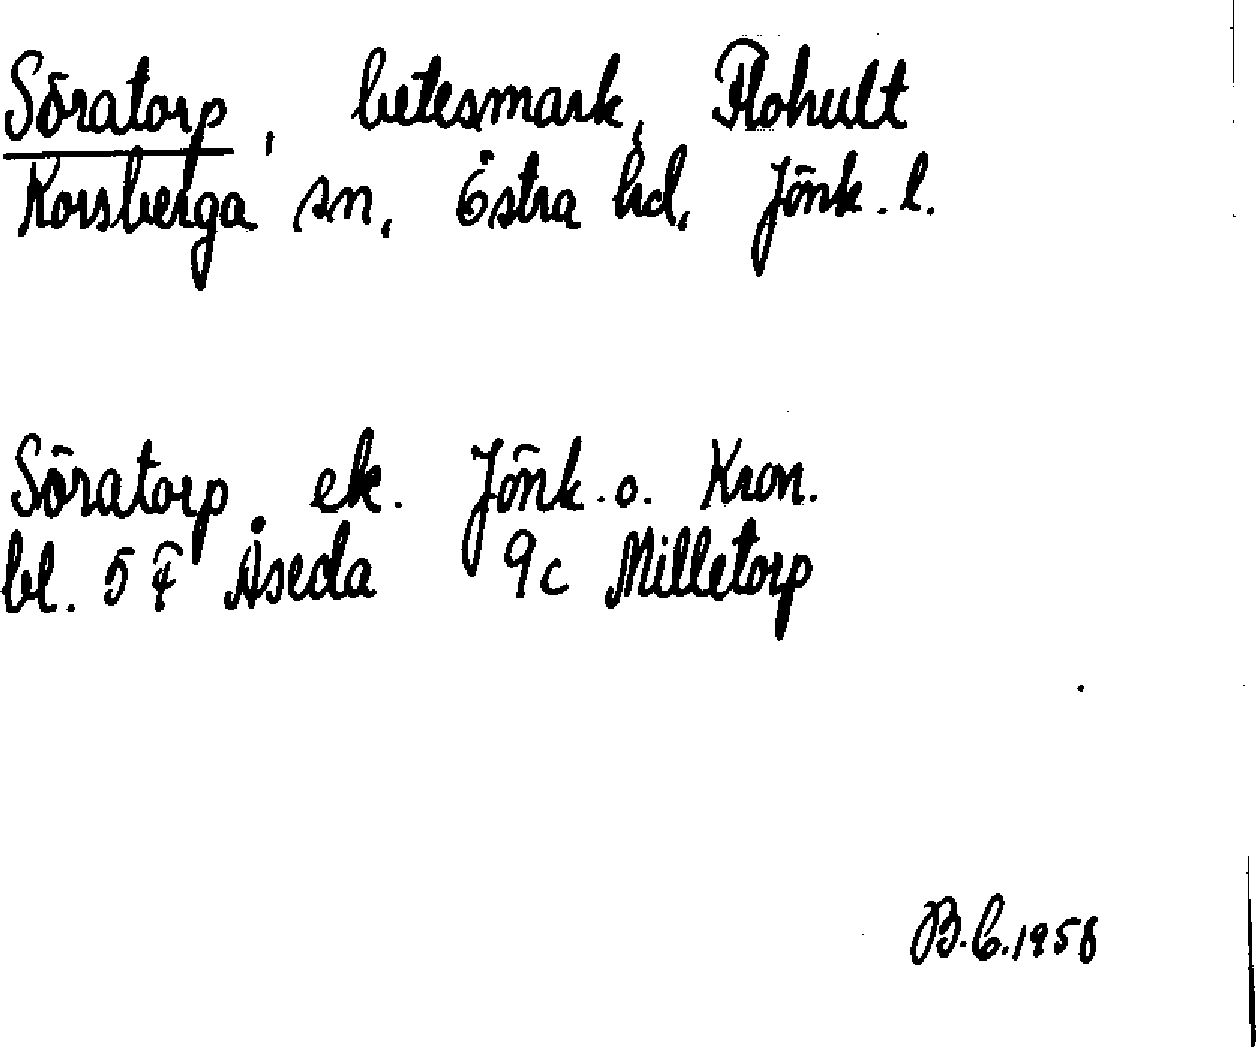 Söratorp, betesmark, Flohult
Korsberga sn, Östra hd, Jönk. l.
Söratorp ek. Jönk. o. Kron.
bl. 5 F Åseda 9c Milletorp
B.C. 1958